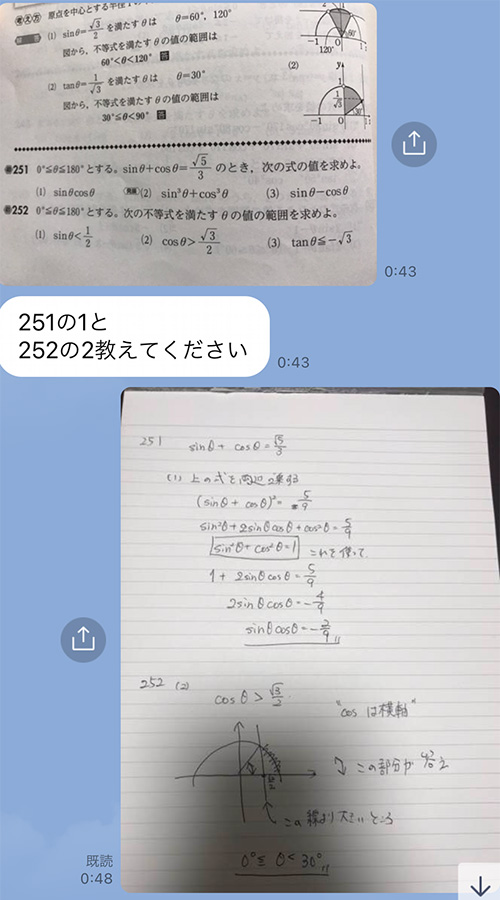 考え方 原点を中心とする半径1の
(1) sinθ=√3/2 を満たすθは θ=60°, 120°
図から, 不等式を満たすθの値の範囲は
60°<θ<120° 答
(2) tanθ=1/√3 を満たすθは θ=30°
図から, 不等式を満たすθの値の範囲は
30°≦θ<90° 答
-1 0
60°
120°
(2)
y
1
1/√3
30°
-1 0
251 0°≦θ≦180°とする。sinθ+cosθ=√5/3 のとき, 次の式の値を求めよ。
(1) sinθcosθ (2) sin³θ+cos³θ (3) sinθ-cosθ
252 0°≦θ≦180°とする。次の不等式を満たすθの値の範囲を求めよ。
(1) sinθ<1/2 (2) cosθ>√3/2 (3) tanθ≦-√3
0:43
251の1と
252の2教えてください
0:43
251 sinθ + cosθ = √5/3
(1) 上の式を両辺2乗する
(sinθ + cosθ)² = 5/9
sin²θ+2sinθcosθ+cos²θ=5/9
sin²θ+cos²θ=1 これを使って
1 + 2sinθcosθ = 5/9
2sinθcosθ = -4/9
sinθcosθ = -2/9
252 (2) cosθ > √3/2
"cosは横軸"
この部分が
この線より大きいところ
0°≦ θ < 30°
既読
0:48